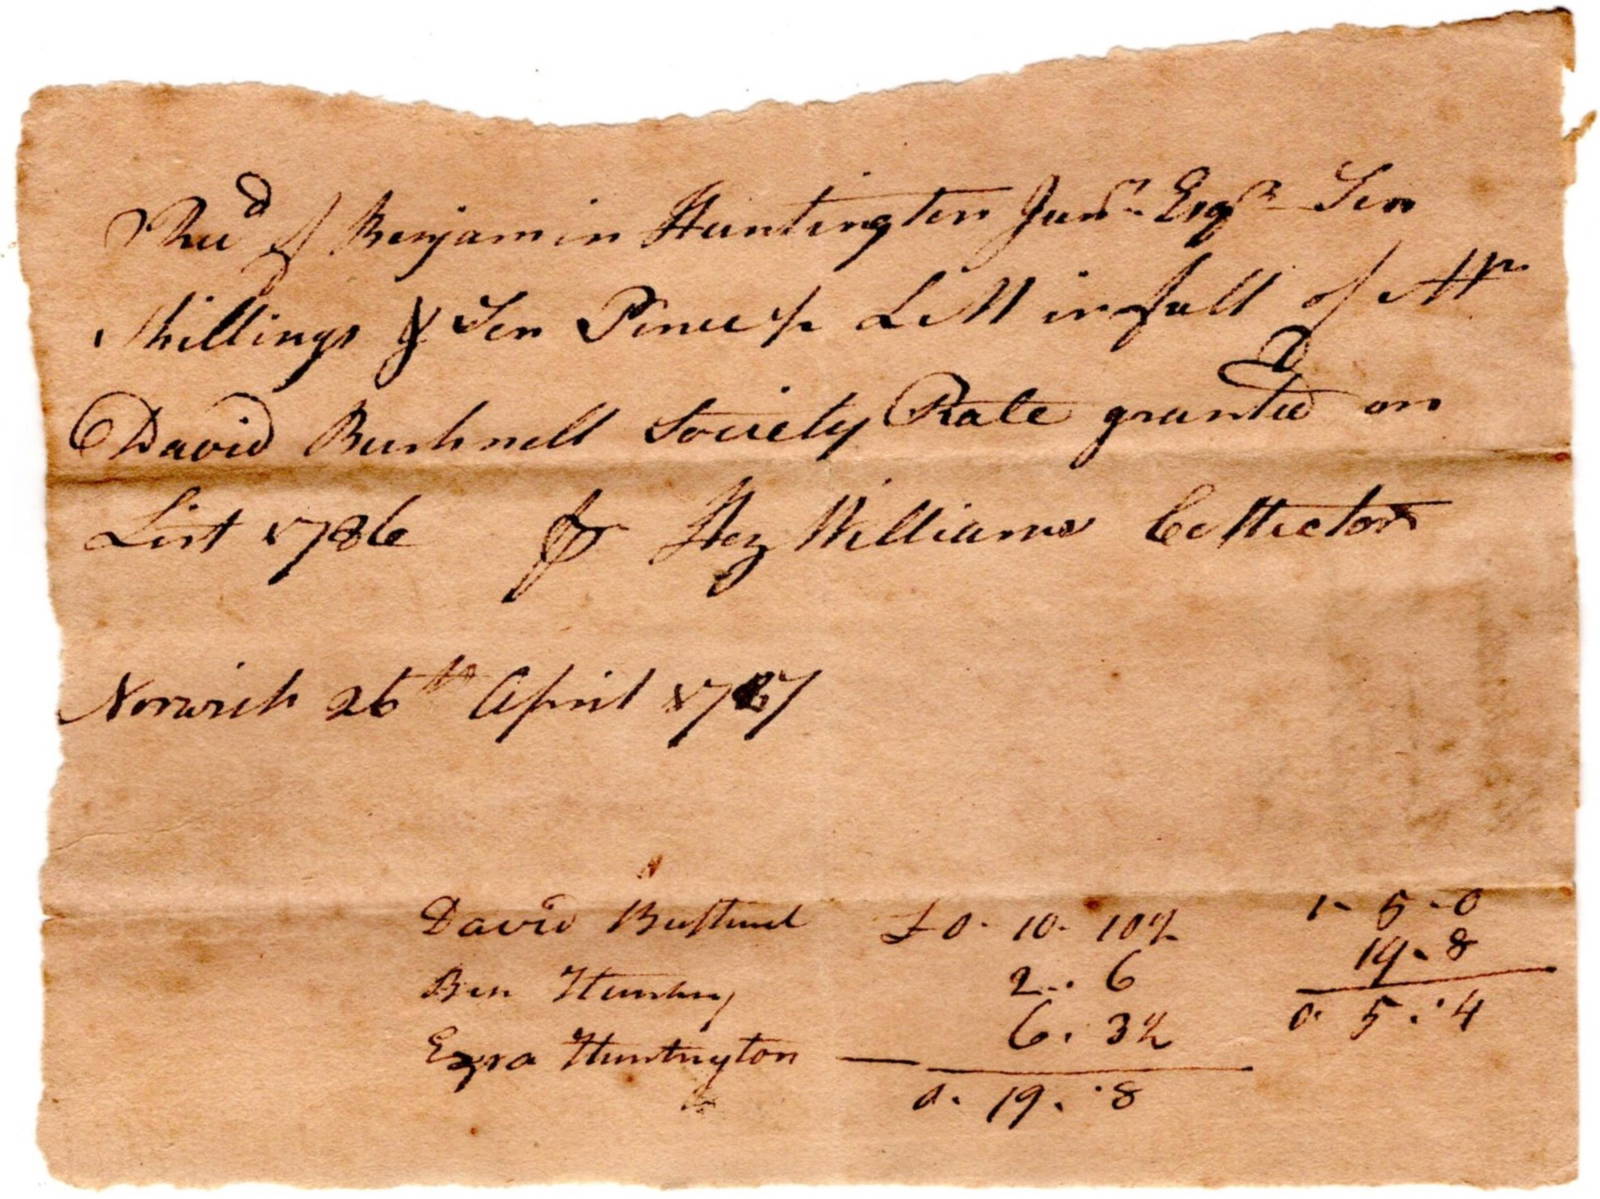 Recd of Benjamin Huntington Junr Esqr Ten
Shillings & Ten Pence ½ L M in full of Mr
David Bushnell Society Rate granted on
List 1786 Hez Williams Collector
Norwich 26th April 1787
David Bushnel £0. 10. 10½ 1- 5 - 0
Ben Hunting 2 . . 6 19 . 8
Ezra Huntington 6 . 3½ 0. 5 . . 4
0. 19 . . 8